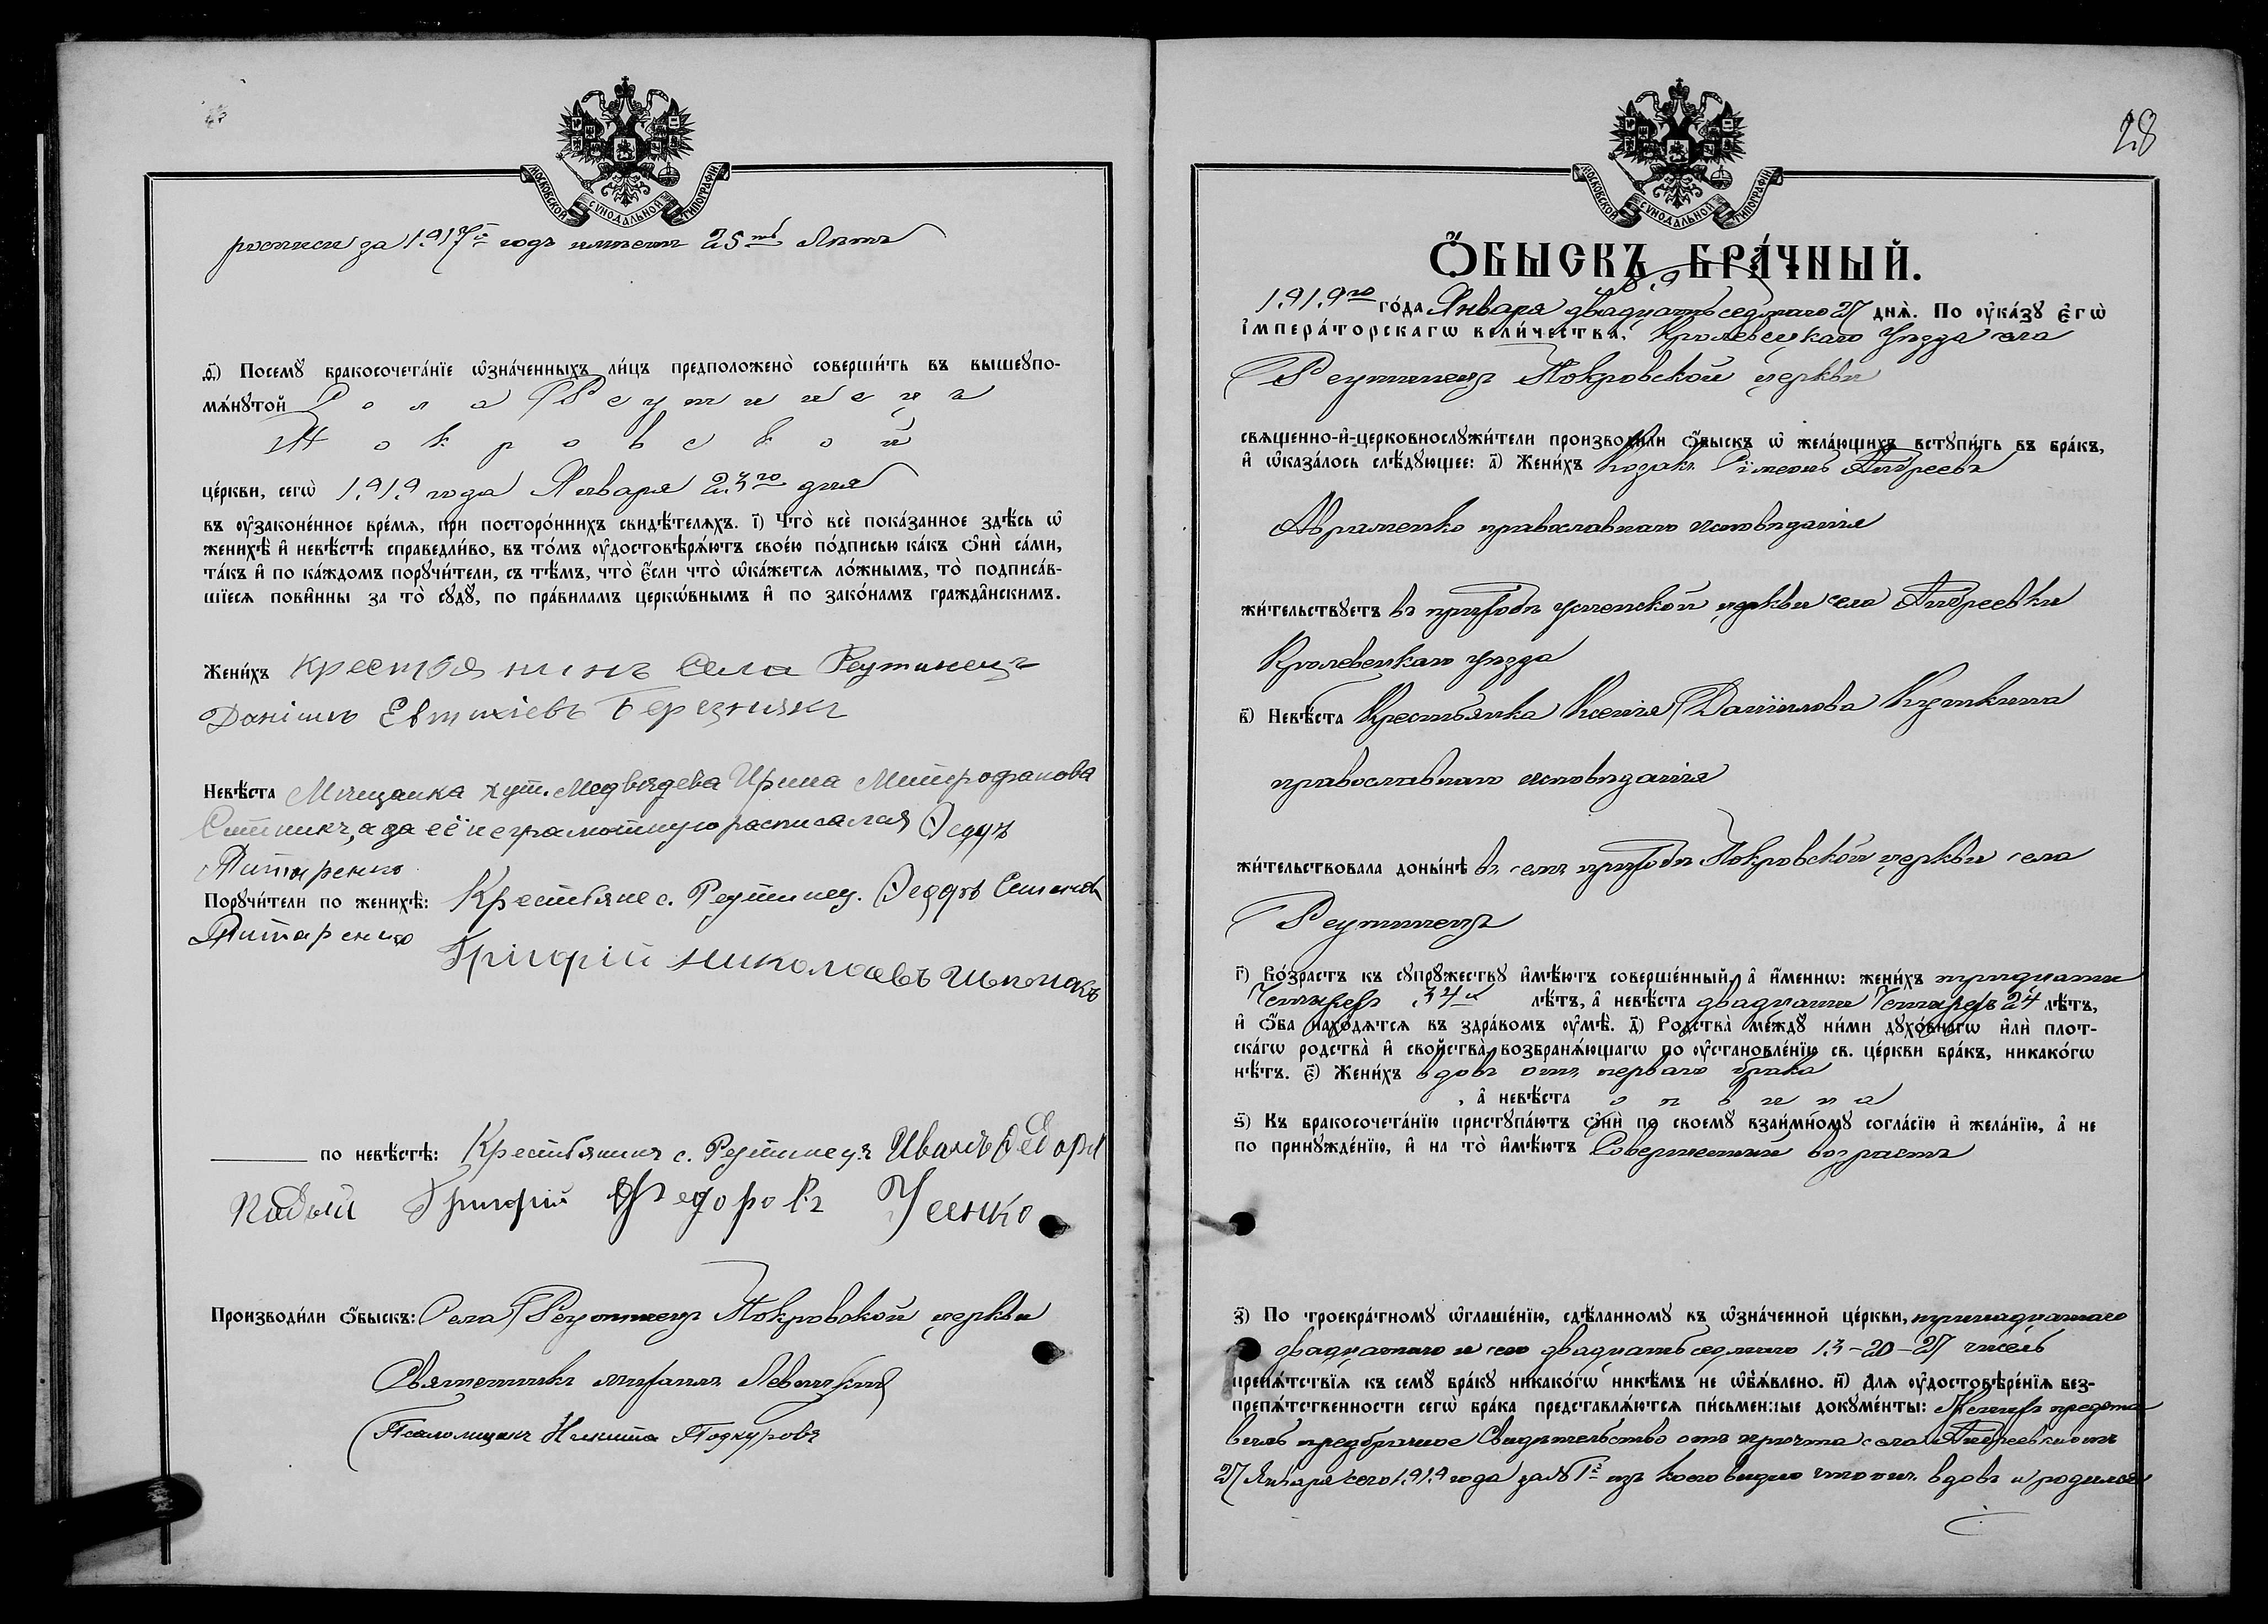 МОСКОВСКОЙ СѴНОДАЛЬНОЙ ТИПОГРАФІИ
росписи за 1917й годъ имѣетъ 25ть Лѣтъ
д҃) Посемꙋ̀ бракосочета́нїе ѡ҆зна́ченныхъ ли́цъ предположено̀ соверши́ть въ вышеꙋпо-
мѧ́нꙋтой Села Реутинецъ
Покровской
це́ркви, сегѡ̀ 1919 года Января 23го дня
въ ᲂу҆законе́нное вре́мѧ, при посторо́ннихъ свидѣ́телѧхъ. і҃) Что̀ всѐ пока́занное здѣ́сь ѡ҆
женихѣ̀ и҆ невѣ́стѣ справедли́во, въ то́мъ ᲂу҆достовѣрѧ́ютъ свое́ю по́дписью ка́къ ѻ҆нѝ са́ми,
та́къ и҆ по ка́ждомъ порꙋчи́тели, съ тѣ́мъ, что̀ є҆́сли что̀ ѡ҆ка́жетсѧ ло́жнымъ, то̀ подписа́в-
шїесѧ пови́нны за то̀ сꙋдꙋ̀, по пра́виламъ церкѡ́внымъ и҆ по зако́намъ гражда̑нскимъ.
Жени́хъ крестьянинъ села Реутинецъ
Даніилъ Евтихіевъ Березнякъ
Невѣ́ста Мѣщанка хут. Медведева Ирина Митрофанова
а за её неграмотную расписался Ѳедоръ
Титаренко
Порꙋчи́тели по женихѣ̀: Крестьяне с. Реутинец. Ѳедоръ Семеновъ
Титаренко
Григорій Николаевъ
по невѣ́стѣ: Крестьянинъ с. Реутинецъ Иванъ
Григорій Федоровъ Усенко
Производи́ли ѻ҆́быскъ: Села Реутинецъ Покровской церкви
Священникъ Михаилъ Левицкій
Псаломщикъ Никита
28
МОСКОВСКОЙ СѴНОДАЛЬНОЙ ТИПОГРАФІИ
Ѻ҆́БЫСКЪ БРА́ЧНЫЙ.
1919го го́да Января двадцать седьмаго 27 днѧ̀. По ᲂу҆ка́зꙋ Є҆гѡ̀
І҆мпера́торскагѡ вели́чества, Кролевецкаго уѣзда села
Реутинецъ Покровской церкви
свѧщенно-и҆-церковнослꙋжи́тели производи́ли ѻ҆́быскъ ѡ҆ жела́ющихъ встꙋпи́ть въ бра́къ,
и҆ ѡ҆каза́лось слѣ́дꙋющее: а҃) Жени́хъ Козакъ Симеонъ Андреевъ
Авраменко православнаго исповѣданія
жи́тельствꙋетъ въ приходѣ успенской церкви села Андреевки
Кролевецкаго уѣзда
в҃) Невѣ́ста Крестьянка Ксенія Даніилова Кушкина
православнаго исповѣданія
жи́тельствовала доны́нѣ въ семъ приходѣ Покровской церкви села
Реутинецъ
г҃) Во́зрастъ къ сꙋпрꙋ́жествꙋ и҆мѣ́ютъ соверше́нный, а҆ и҆́меннѡ: жени́хъ тридцати
Четырехъ 34хъ лѣ́тъ, а҆ невѣ́ста двадцати Четырехъ 24 лѣ́тъ,
и҆ ѻ҆́ба нахо́дѧтсѧ въ здра́вомъ ᲂу҆мѣ̀. д҃) Родства̀ междꙋ̀ ни́ми дꙋхо́внагѡ и҆лѝ плот-
ска́гѡ родства̀ и҆ сво́йства возбранѧ́ющагѡ по ᲂу҆становле́нїю св. це́ркви бра́къ, никако́гѡ
нѣ́тъ. є҃) Жени́хъ вдовъ отъ перваго брака
, а҆ невѣ́ста
ѕ҃) Къ бракосочета́нїю пристꙋпа́ютъ ѻ҆нѝ по своемꙋ̀ взаи́мномꙋ согла́сїю и҆ жела́нїю, а҆ не
по принꙋжде́нїю, и҆ на то̀ и҆мѣ́ютъ Совершенный возрастъ
з҃) По троекра́тномꙋ ѡ҆глаше́нїю, сдѣ́ланномꙋ въ ѡ҆зна́ченной це́ркви, тринадцатаго
двадцатаго и сего двадцать седьмаго 13-20-27 чиселъ
препѧ́тствїѧ къ семꙋ̀ бра́кꙋ никако́гѡ никѣ́мъ не ѡ҆б̾ѧ́влено. и҃) Длѧ ᲂу҆достовѣре́нїѧ без-
препѧ́тственности сегѡ̀ бра́ка представлѧ́ютсѧ пи́сьменные докꙋме́нты: Женихъ предста
вилъ предбрачное Свидѣтельство отъ причта села Андреевки отъ
27 Января сего 1919 года за № 1й изъ коего видно что онъ вдовъ и родился